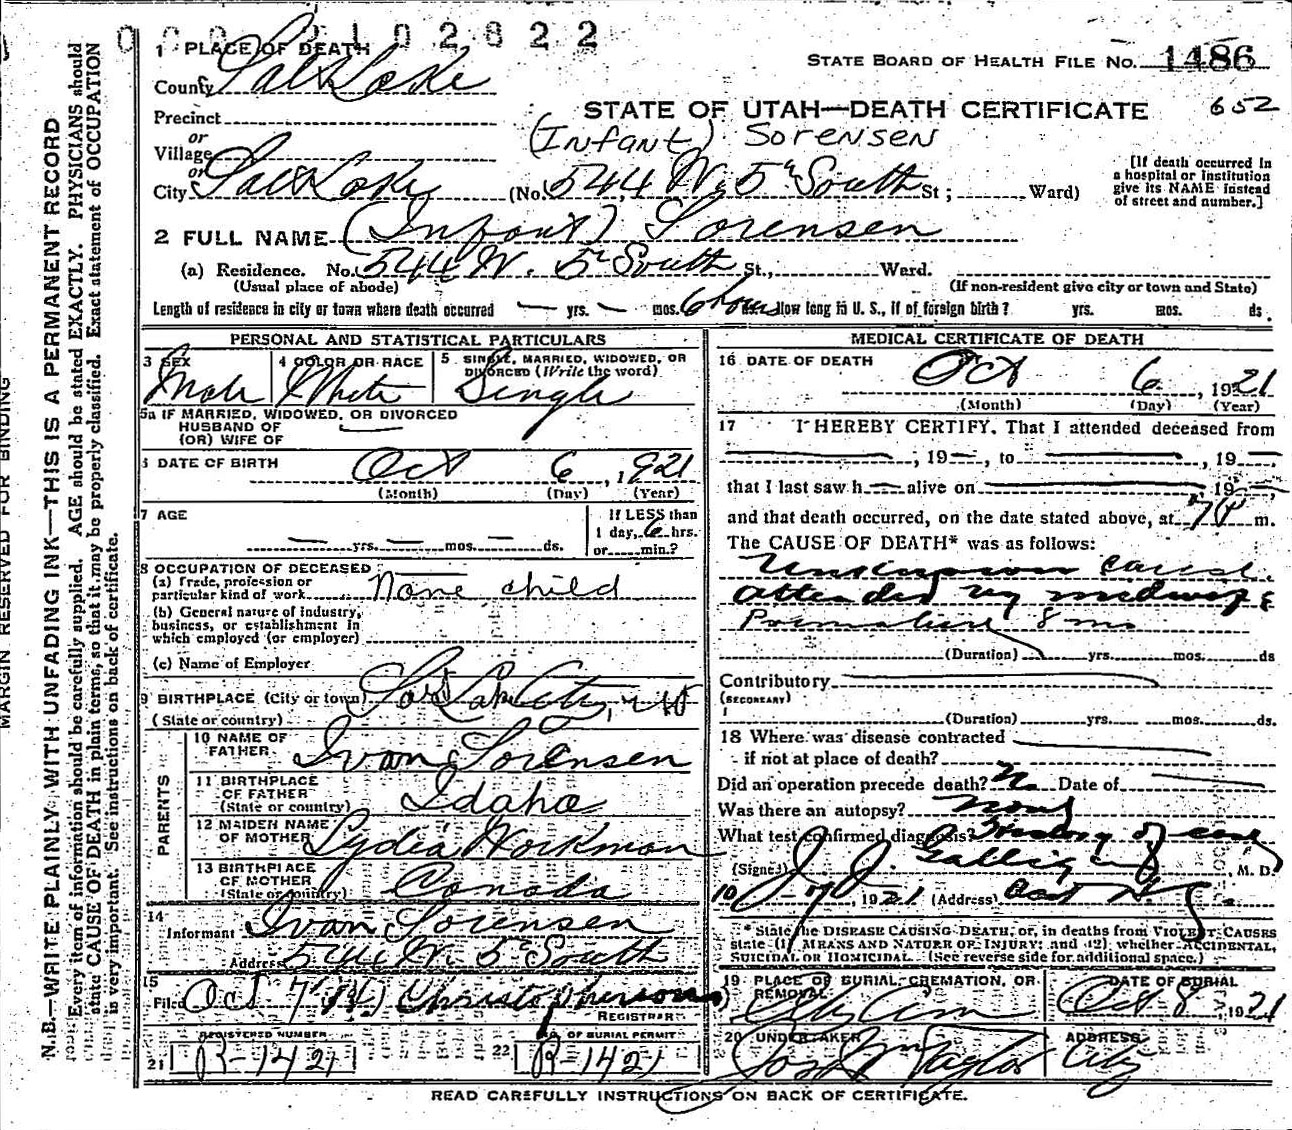 0002102622
1 PLACE OF DEATH
County Salt Lake
STATE BOARD OF HEALTH FILE NO. 1486
Precinct
STATE OF UTAH—DEATH CERTIFICATE 652
or
Village
(Infant) Sorensen
or
City Salt Lake (No. 544 W. 5th South St; Ward)
[If death occurred in
a hospital or institution
give its NAME instead
of street and number.]
2 FULL NAME (Infant) Sorensen
(a) Residence. No. 544 W. 5th South St., Ward.
(Usual place of abode) (If non-resident give city or town and State)
Length of residence in city or town where death occurred — yrs. — mos. 6 hours How long in U. S., if of foreign birth? yrs. mos. ds.
PERSONAL AND STATISTICAL PARTICULARS
3 SEX 4 COLOR OR RACE 5 SINGLE, MARRIED, WIDOWED, OR
DIVORCED (Write the word)
Male White Single
5a IF MARRIED, WIDOWED, OR DIVORCED
HUSBAND OF
(OR) WIFE OF
6 DATE OF BIRTH Oct 6, 1921
(Month) (Day) (Year)
7 AGE If LESS than
1 day, 6 hrs.
— yrs. — mos. — ds. or min.?
8 OCCUPATION OF DECEASED
(a) Trade, profession or
particular kind of work None child
(b) General nature of industry,
business, or establishment in
which employed (or employer)
(c) Name of Employer
9 BIRTHPLACE (City or town) Salt Lake City,
(State or country)
PARENTS
10 NAME OF
FATHER Ivan Sorensen
11 BIRTHPLACE
OF FATHER
(State or country) Idaho
12 MAIDEN NAME
OF MOTHER Lydia Workman
13 BIRTHPLACE
OF MOTHER
(State or country) Canada
14
Informant Ivan Sorensen
Address 544 W. 5th South
15
Filed Oct 7 Christophersons
REGISTRAR
REGISTERED NUMBER NO. OF BURIAL PERMIT
21 R-1421 22 R-1421
MEDICAL CERTIFICATE OF DEATH
16 DATE OF DEATH Oct 6, 1921
(Month) (Day) (Year)
17 I HEREBY CERTIFY, That I attended deceased from
—, 19—, to —, 19—
that I last saw h— alive on — 19—
and that death occurred, on the date stated above, at 7 m.
The CAUSE OF DEATH* was as follows:
Unknown cause.
attended by midwife
Premature 8 mo
(Duration) yrs. mos. ds
Contributory
(SECONDARY)
(Duration) yrs. mos. ds.
18 Where was disease contracted
if not at place of death?
Did an operation precede death? No Date of
Was there an autopsy? None
What test confirmed diagnosis? History of case
(Signed) J. J. Galligan, M. D.
10 - 7, 1921 (Address)
* State the DISEASE CAUSING DEATH, or, in deaths from VIOLENT CAUSES
state (1) MEANS AND NATURE OF INJURY; and (2) whether ACCIDENTAL,
SUICIDAL OR HOMICIDAL. (See reverse side for additional space.)
19 PLACE OF BURIAL, CREMATION, OR
REMOVAL DATE OF BURIAL
City Cem Oct 8 1921
20 UNDERTAKER ADDRESS
Jos Wm Taylor City
READ CAREFULLY INSTRUCTIONS ON BACK OF CERTIFICATE.
MARGIN RESERVED FOR BINDING
N.B.—WRITE PLAINLY WITH UNFADING INK—THIS IS A PERMANENT RECORD
Every item of information should be carefully supplied. AGE should be stated EXACTLY. PHYSICIANS should
state CAUSE OF DEATH in plain terms, so that it may be properly classified. Exact statement of OCCUPATION
is very important. See instructions on back of certificate.